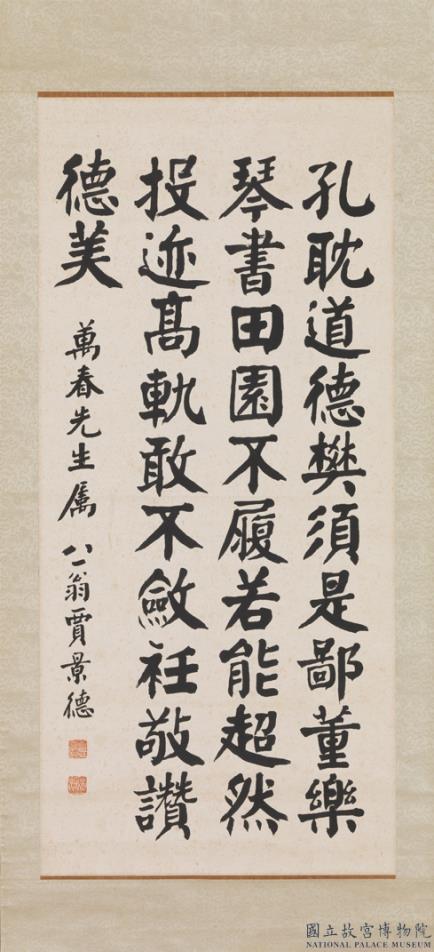 孔耽道德樊須是鄙董樂
琴書田園不履若能超然
投迹髙軌敢不斂衽敬讚
德美
萬春先生属 八一翁賈景德
國立故宮博物院
NATIONAL PALACE MUSEUM